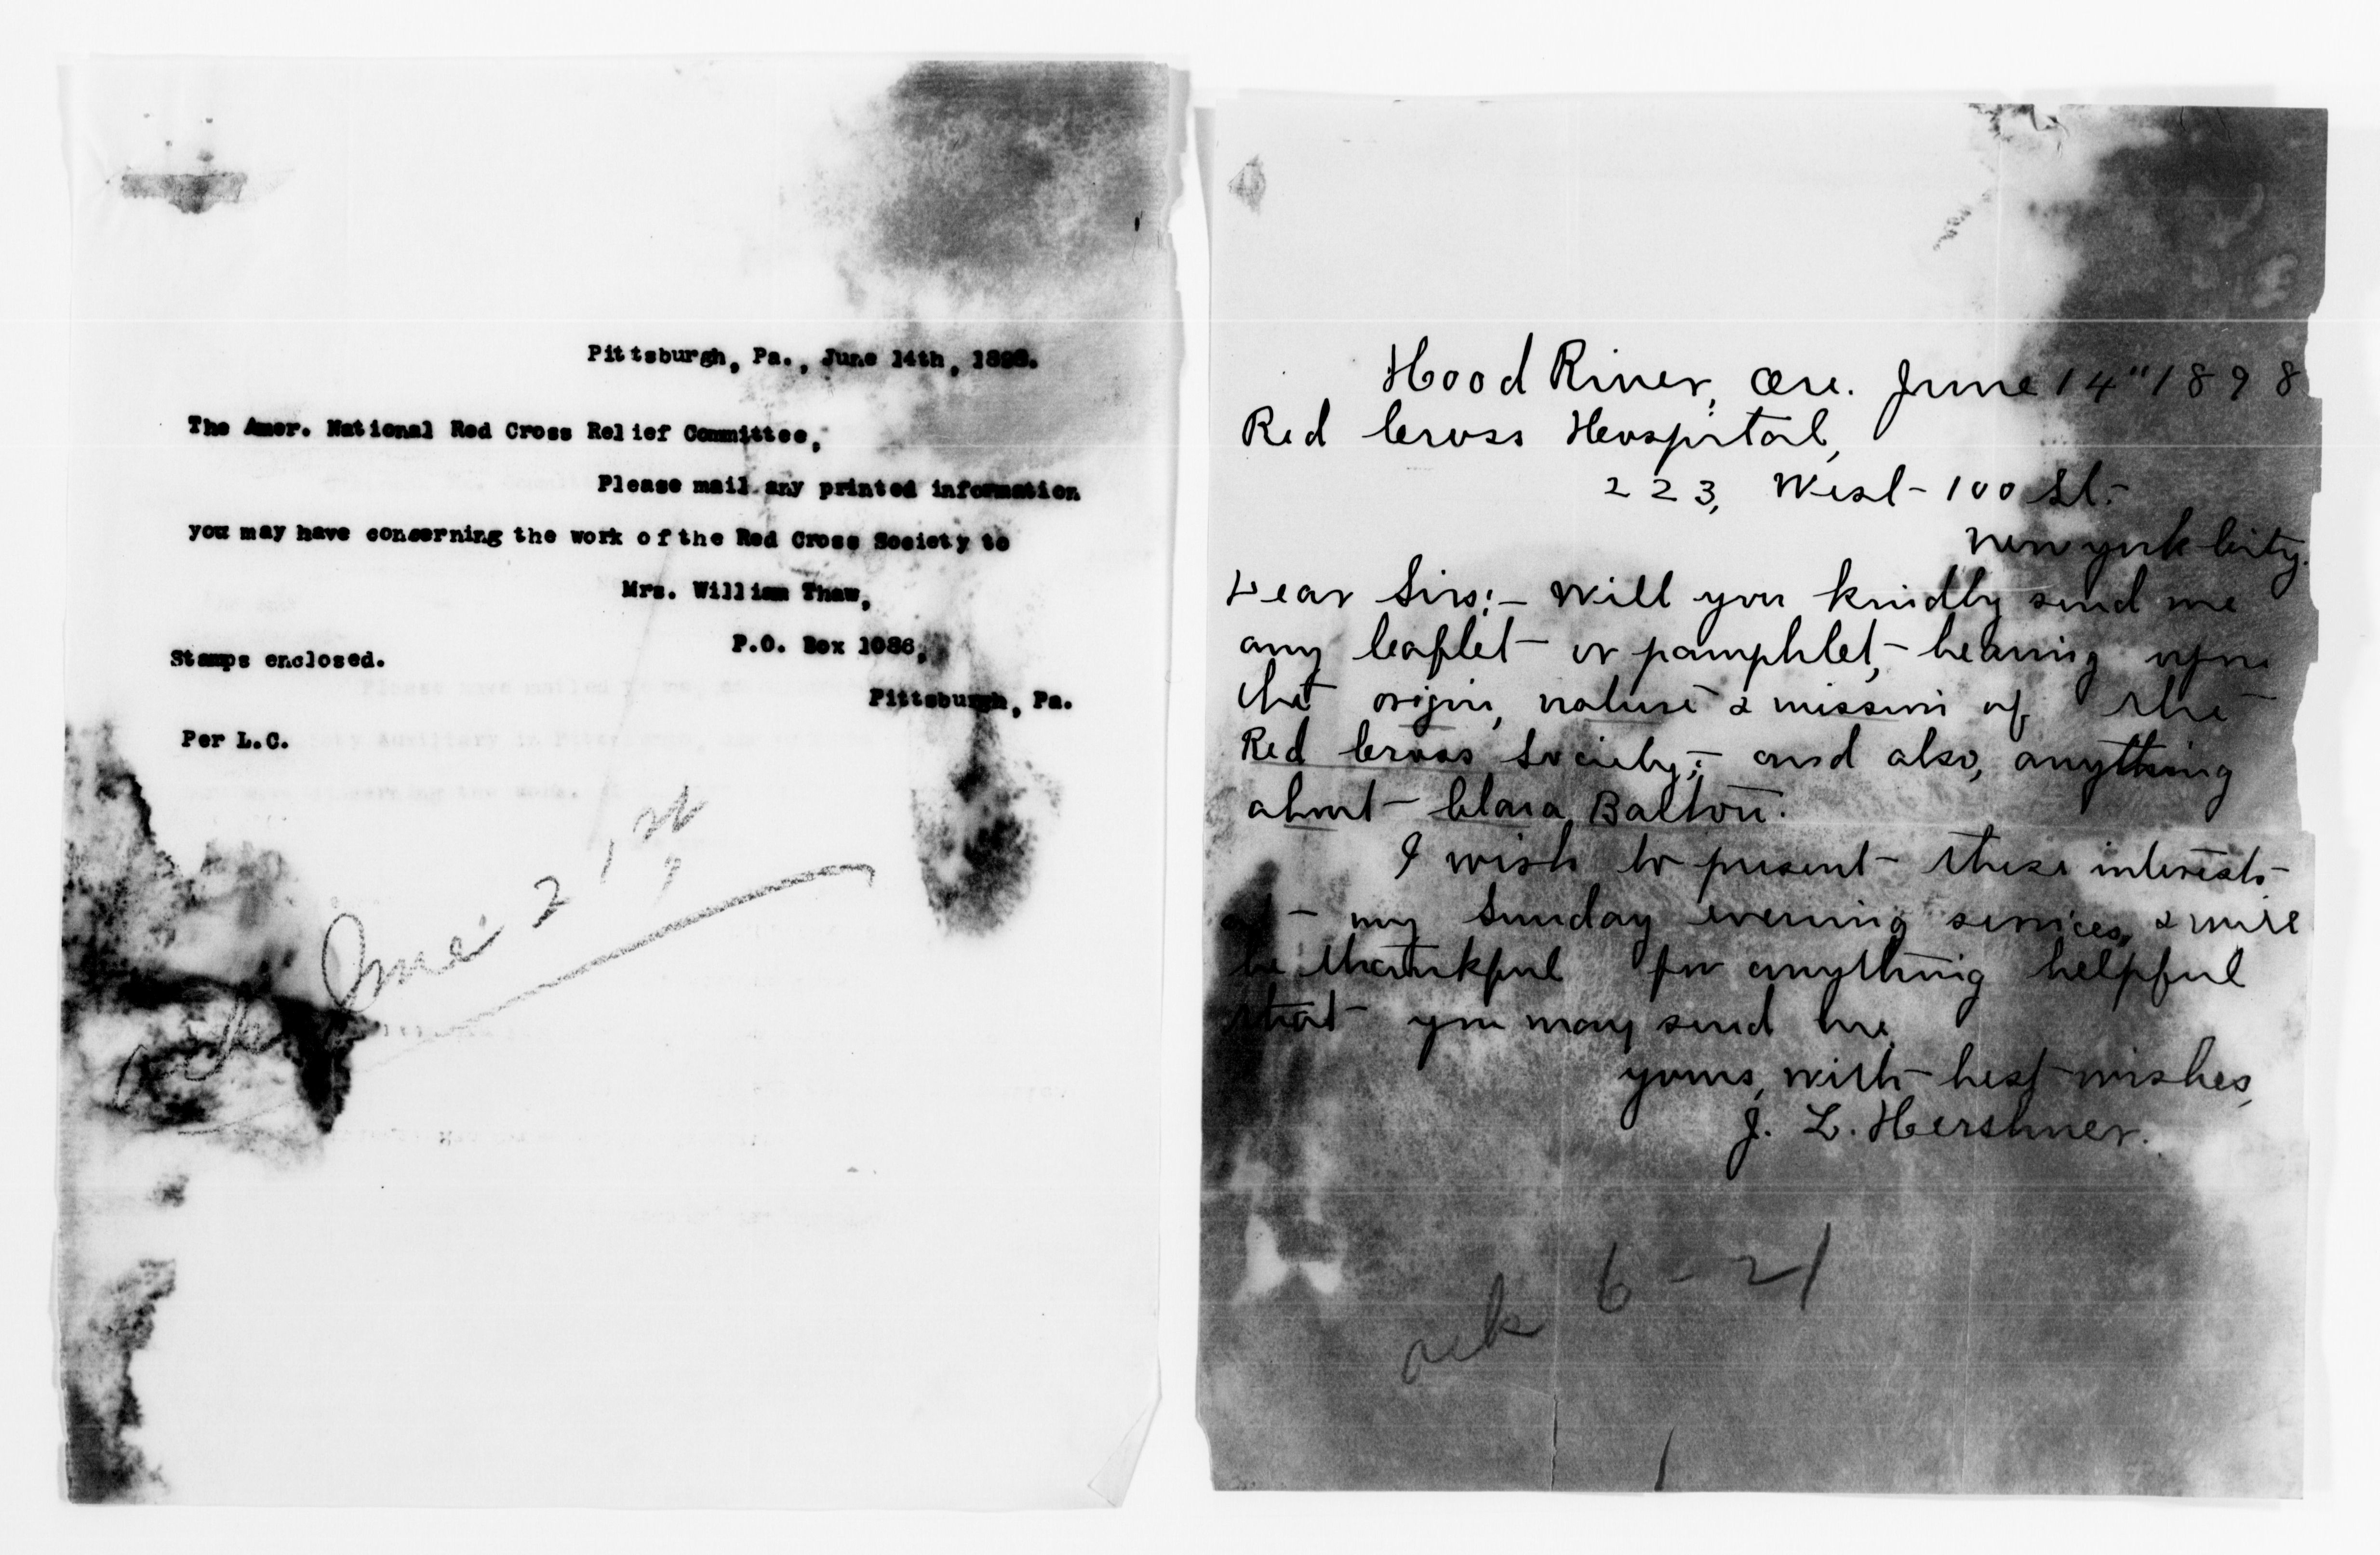 Pittsburgh, Pa., June 14th, 1898.
The Amer. National Red Cross Relief Committee,
Please mail any printed information
you may have concerning the work of the Red Cross Society to
Mrs. William Thaw,
P.O. Box 1086,
Stamps enclosed.
Pittsburgh, Pa.
Per L.C.
ack June 21st
Hood River, Ore. June 14" 1898
Red Cross Hospital,
223, West 100 St.
New York City.
Dear Sirs:- Will you kindly send me
any leaflet or pamphlet, bearing upon
the origin, nature & mission of the
Red Cross Society; and also, anything
about Clara Barton.
I wish to present these interests
at my Sunday evening services, & will
be thankful for anything helpful
that you may send me.
Yours, with best wishes,
J. L. Hershner.
ack 6-21